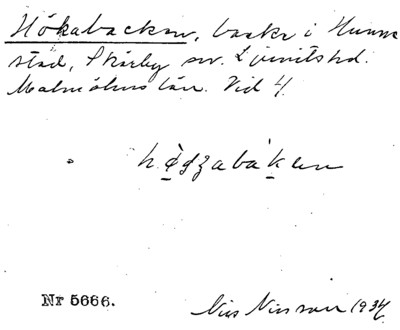 Hökabacken, backe i Hunne-
stad, Skårby sn. Ljunits hd.
Malmöhus län. Vid 4.
Nr 5666. Nils Nilsson 1934